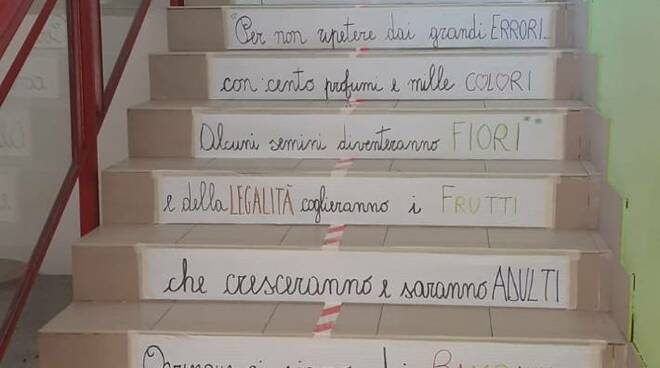 "Per non ripetere dai grandi ERRORI...
con cento profumi e mille COLORI
Alcuni semini diventeranno FIORI"
e della LEGALITÀ coglieranno i FRUTTI
che cresceranno e saranno ADULTI